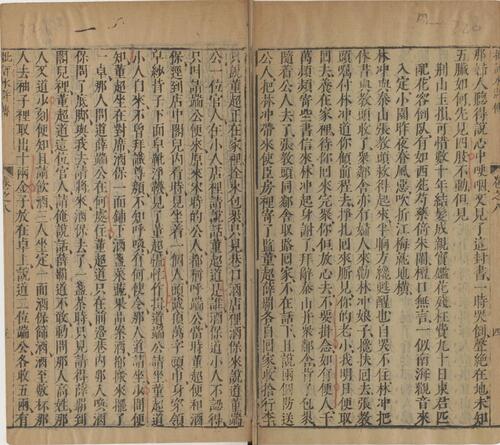 那婦人聽得說心中哽咽又見了這封書一時哭倒聲絕在地未知
五臟如何先見四肢不動但見
荊山玉損可惜數十年結髮成親寶鑑花殘枉費九十日東君匹
配花容倒臥有如西苑芍藥倚朱闌檀口無言一似南海觀音來
入定小園昨夜春風惡吹折江梅就地橫
林冲與泰山張教頭救得起來半晌方纔甦醒也自哭不住林冲把
休書與教頭收了衆鄰舍亦有婦人來勸林冲娘子攙扶回去張教
頭囑付林冲道你顧前程去掙扎回來厮見你的老小我明日便取
回去養在家裡待你回來完聚你但放心去不要掛念如有便人千
萬頻頻寄些書信來林冲起身謝了拜辭泰山并衆鄰舍背了包裹
隨着公人去了張教頭同鄰舍取路回家不在話下且說兩個防送
公人把林冲帶來使臣房裡寄了監董超薛霸各自回家收拾行李
只說董超正在家裡拴束包裹只見巷口酒店裡酒保來說道董端
公一位官人在小人店裡請說話董超道是誰酒保道小人不認得
只叫請端公便來原來宋時的公人都稱呼端公當時董超便和酒
保逕到店中閣兒內看時見坐着一個人頭戴頂萬字頭巾身穿領
皂紗背子下面皂靴淨襪見了董超慌忙作揖道端公請坐董超道
小人自來不曾拜識尊顏不知呼喚有何使令那人道請坐少間便
知董超坐在對席酒保一面鋪下酒盞菜蔬果品案酒都搬來擺了
一卓那人問道薛端公在何處住董超道只在前邊巷內那人喚酒
保問了底脚與我去請將來酒保去了一盞茶時只見請得薛霸到
閣兒裡董超道這位官人請俺說話薛霸道不敢動問大人高姓那
人又道少刻便知且請飲酒三人坐定一面酒保篩酒酒至數杯那
人去袖子裡取出十兩金子放在卓上說道二位端公各收五兩有
批評水滸傳
卷之八